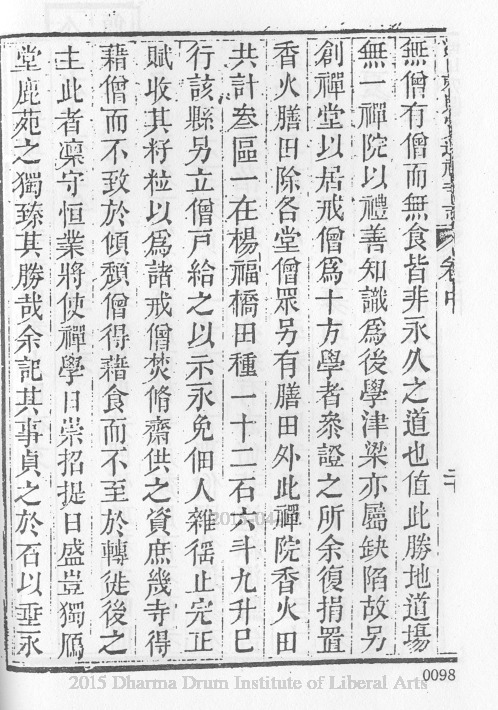 無僧有僧而無食皆非永久之道也值此勝地道場
無一禪院以禮善知識為後學津梁亦屬缺陷故另
創禪堂以居戒僧為十方學者叅證之所余復捐置
香火膳田除各堂僧眾另有膳田外此禪院香火田
共計叁區一在楊福橋田種一十二石六斗九升已
行該縣另立僧戸給之以示永免佃人雜徭止完正
賦收其籽粒以為諸戒僧焚脩齋供之資庶幾寺得
藉僧而不致於傾頹僧得藉食而不至於轉徙後之
主此者凜守恒業將使禪學日崇招提日盛豈獨鴈
堂鹿苑之獨臻其勝哉余記其事貞之於石以垂永
卷中
二十
0098
2015 Dharma Drum Institute of Liberal Arts